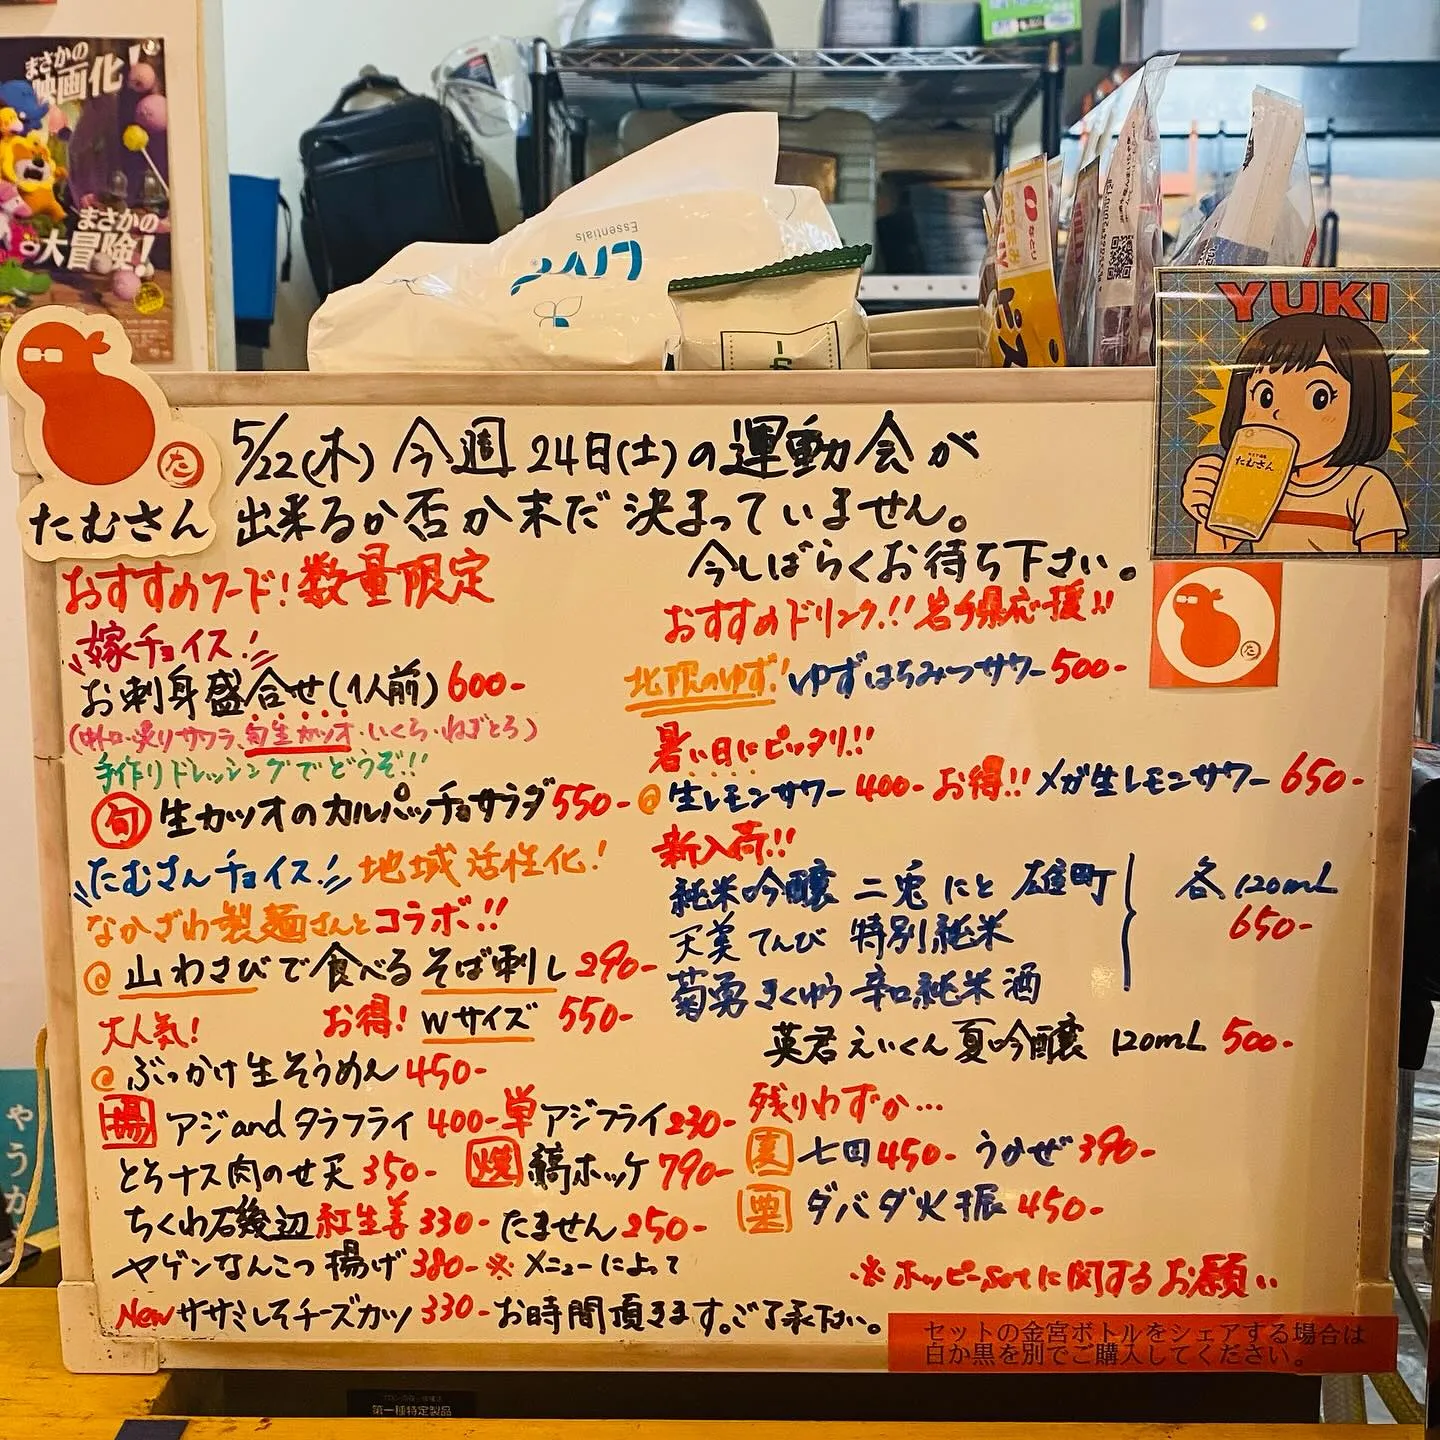 まさかの
映画化!
まさかの
大冒険!
LIVY
Essentials
YUKI
たむさん
た
たむさん
5/22(木) 今週 24日(土)の運動会が
出来るか否か未だ決まっていません。
今しばらくお待ち下さい。
おすすめフード!数量限定
嫁チョイス!
お刺身盛合せ(1人前) 600-
(中トロ・炙りサワラ、旬生カツオ・いくら・ねぎとろ)
手作りドレッシングでどうぞ!!
旬 生カツオのカルパッチョサラダ 550-
たむさんチョイス! 地域活性化!
なかざわ製麺さんとコラボ!!
@ 山わさびで食べるそば刺し 290-
お得! Wサイズ 550-
大人気!
@ ぶっかけ生そうめん 450-
揚 アジandタラフライ 400- 単アジフライ 230-
とろナス肉のせ天 350- 焼 縞ホッケ 790-
ちくわ磯辺紅生姜 330- たません 250-
ヤゲンなんこつ揚げ 380-
New ササミしそチーズカツ 330-
※メニューによって
お時間頂きます。ご了承下さい。
おすすめドリンク!! 岩手県応援!!
北限のゆず! ゆずはちみつサワー 500-
暑い日にピッタリ!!
@ 生レモンサワー 400- お得!! メガ生レモンサワー 650-
新入荷!!
純米吟醸 二兎 にと 雄町
天美 てんび 特別純米
菊勇 きくゆう 辛口純米酒
各120mL
650-
英君えいくん夏吟醸 120mL 500-
残りわずか…
麦 七田 450- うかぜ 390-
栗 ダバダ火振 450-
※ホッピーsetに関するお願い
セットの金宮ボトルをシェアする場合は
白か黒を別でご購入してください。
やうか
第一種特定製品